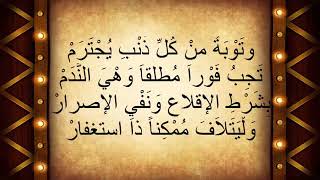 وَتَوْبَةٌ مِنْ كُلِّ ذَنْبٍ يُجْتَرَمْ
تَجِبُ فَوْراً مُطلقاً وَهْيَ النَّدَمْ
بِشَرْطِ الإِقلاعِ وَنَفْيِ الإِصرارْ
وَلْيَتَلاَفَ مُمْكِناً ذَا استغفارْ